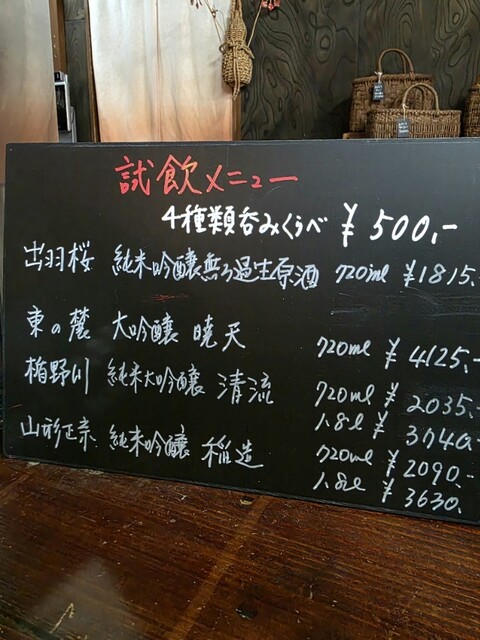 試飲メニュー
4種類呑みくらべ ¥500.-
出羽桜 純米吟醸無ろ過生原酒 720ml ¥1815.-
東の麓 大吟醸 暁天 720ml ¥4125.-
楯野川 純米大吟醸 清流 720ml ¥2035.-
1.8l ¥3740.-
山形正宗 純米吟醸 稲造 720ml ¥2090.-
1.8l ¥3630.